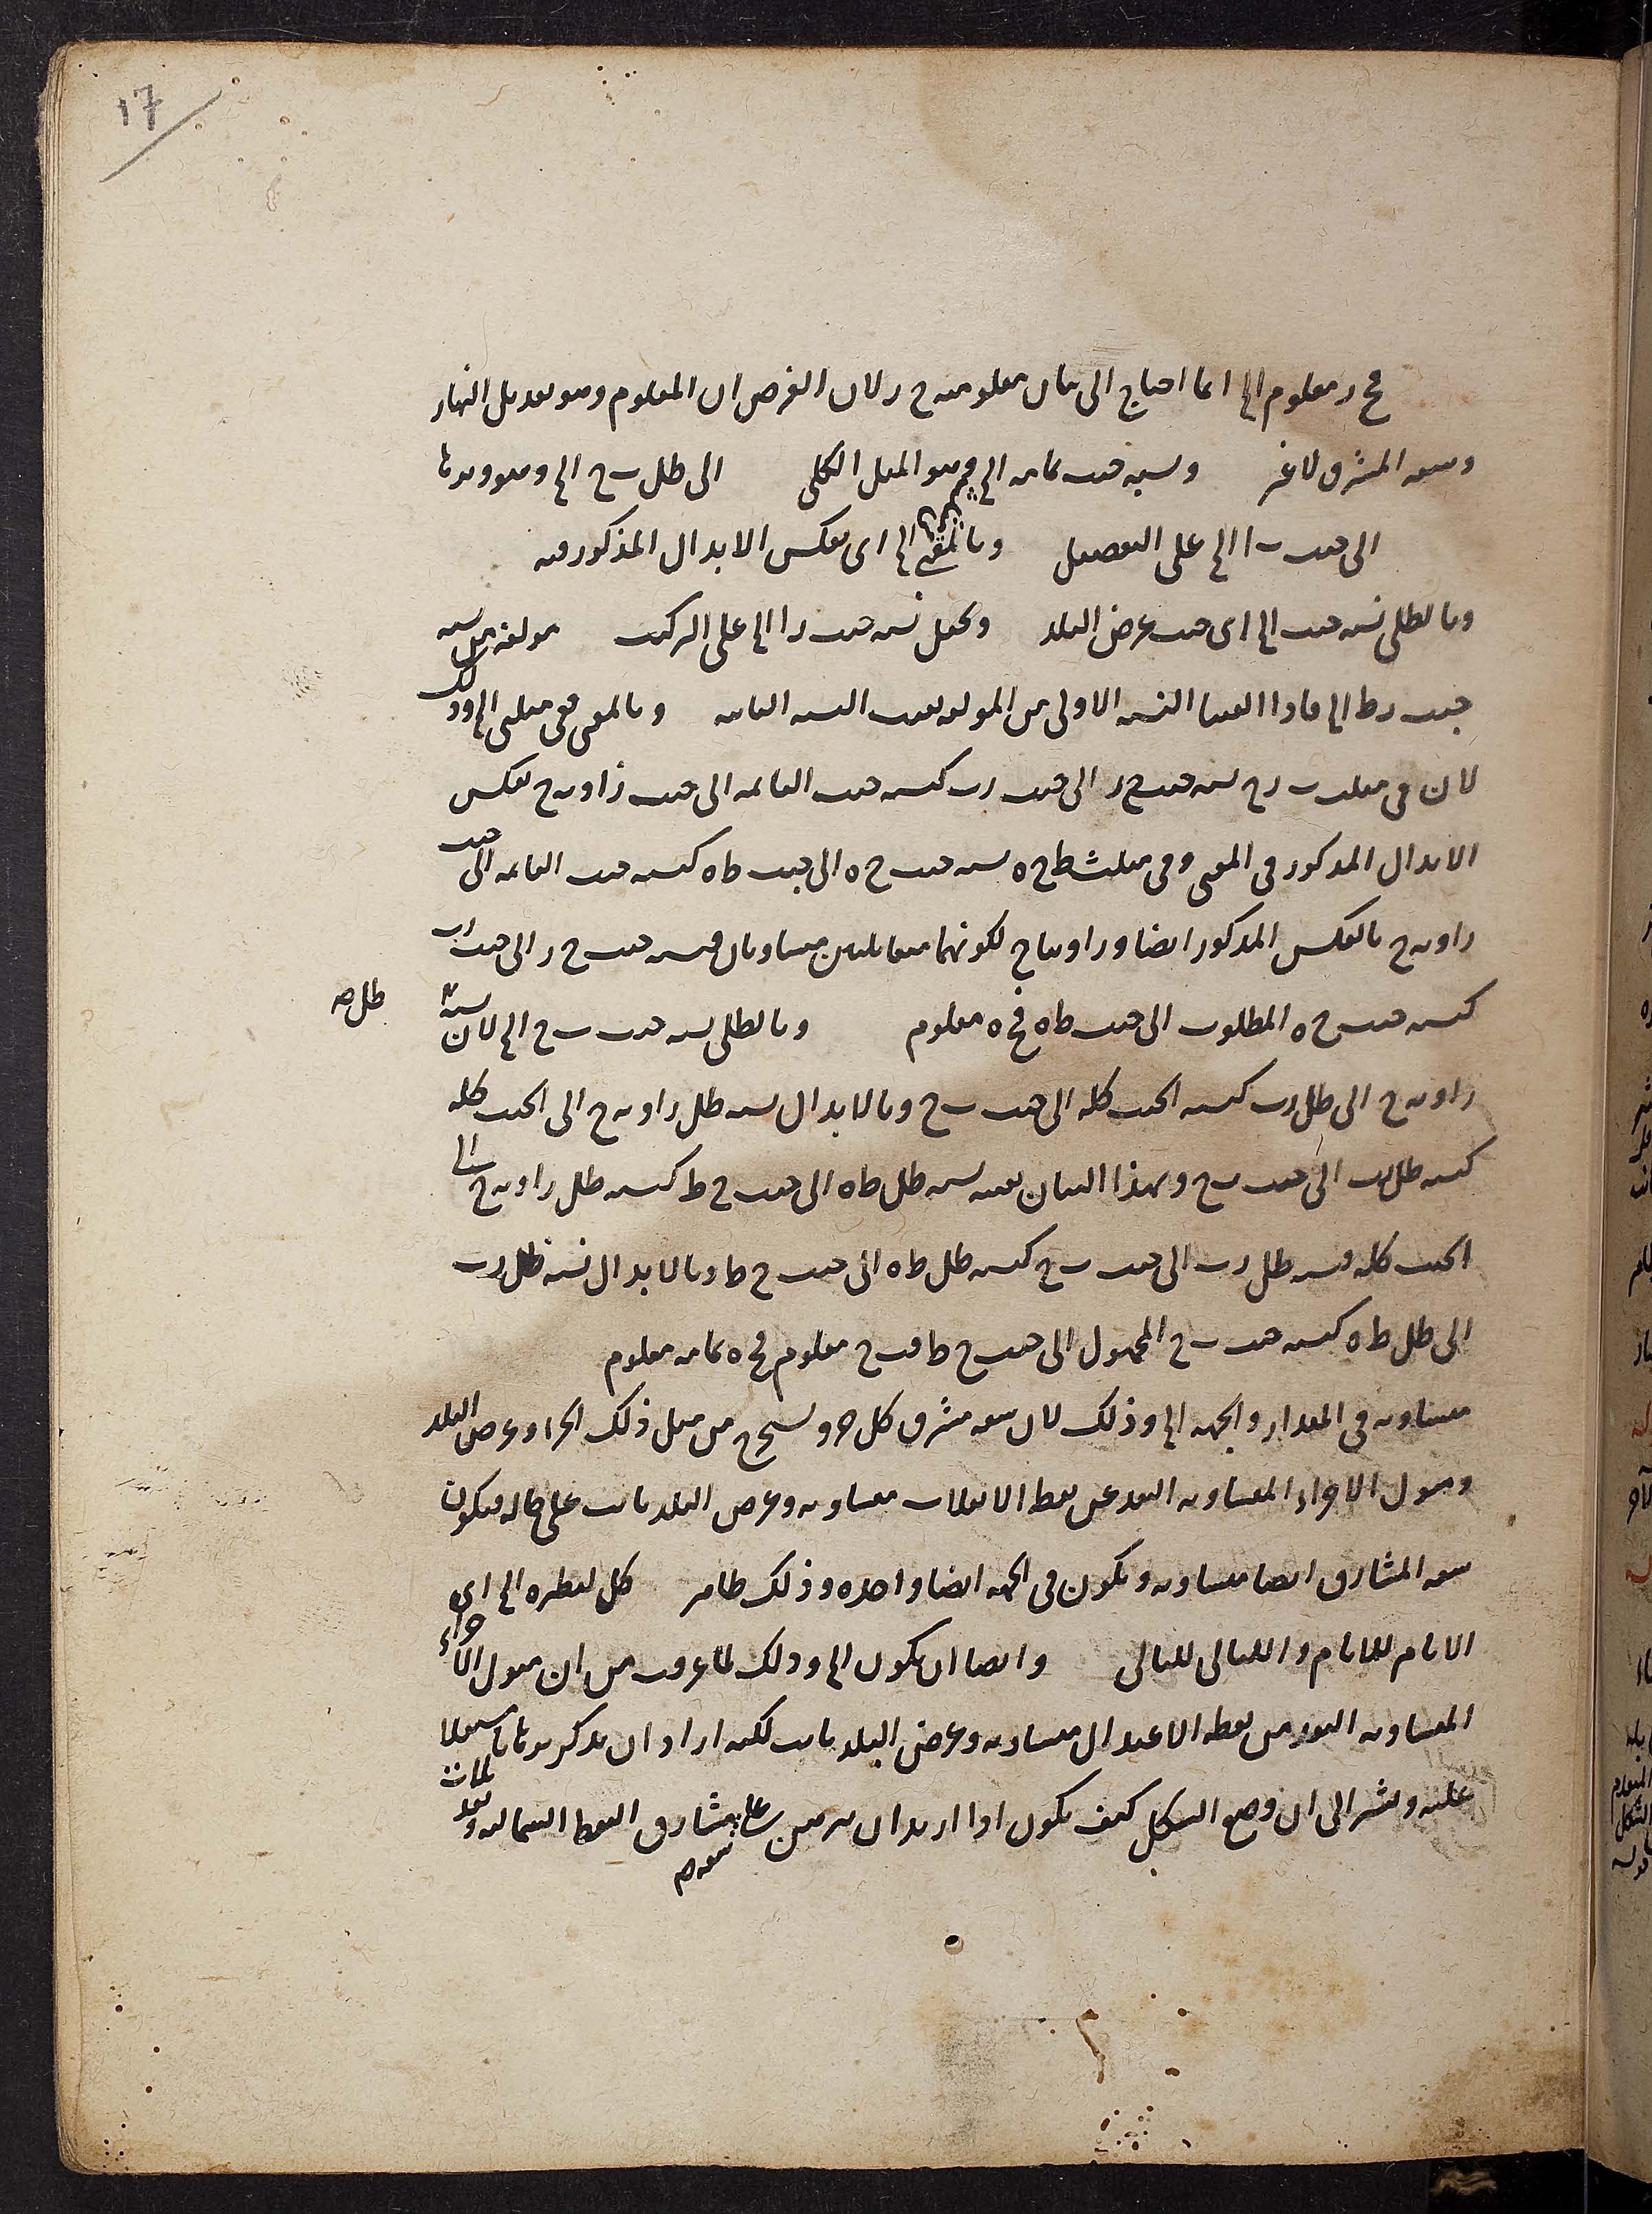 17
ح ر معلوم الخ انما احتاج الى بيان معلومية ح ر لان الفرض ان المعلوم وهو تعديل النهار
وسعة المشرق لا غير ونسبة جيب تمامه الخ وهو الميل الكلى الى ظل ب ح الخ وهو
الى جيب ب ا الخ على التفصيل وبالمغنى الخ اى بعكس الابدال المذكور فيه
وبالظلى نسبة جيب الخ اى جيب عرض البلد ونجعل نسبة جيب ر ا الخ على التركيب مولفة من نسبة
جيب ر ط الخ فاذا القينا النسبة الاولى من المولفة بقيت النسبة الثانية وبالمغنى ففى مثلثى الخ وذلك
لان فى مثلث ب ر ح نسبة جيب ح ر الى جيب ر ب كنسبة جيب القائمة الى جيب زاوية ح بعكس
الابدال المذكور فى المغنى وفى مثلث ط ح ه نسبة جيب ح ه الى جيب ط ه كنسبة جيب القائمة الى جيب
زاوية ح بالعكس المذكور ايضا وزاويتا ح لكونهما متقابلتين متساويتان فنسبة جيب ح ر الى جيب ر ب
كنسبة جيب ح ه المطلوب الى جيب ط ه فح ه معلوم وبالظلى نسبة جيب ب ح الخ لان نسبة
ظل صح
زاوية ح الى ظل ر ب كنسبة الجيب كله الى جيب ب ح وبالابدال نسبة ظل زاوية ح الى الجيب كله
كنسبة ظل ر ب الى جيب ب ح وبهذا البيان بعينه نسبة ظل ط ه الى جيب ح ط كنسبة ظل زاوية ح الى
الجيب كله فنسبة ظل ر ب الى جيب ب ح كنسبة ظل ط ه الى جيب ح ط وبالابدال نسبة ظل ر ب
الى ظل ط ه كنسبة جيب ب ح المجهول الى جيب ح ط فب ح معلوم فح ه تمامه معلوم
متساوية فى المقدار والجهة الخ وذلك لان سعة مشرق كل جزو تستخرج من ميل ذلك الجزء وعرض البلد
وميول الاجزاء المتساوية البعد عن نقط الانقلاب متساوية وعرض البلد ثابت على حاله فيكون
سعة المشارق ايضا متساوية ويكون فى الجهة ايضا واحدة وذلك ظاهر كل لنظيره الخ اى
الايام للايام والليالى لليالى وايضا ان يكون الخ وذلك لما عرفت من ان ميول الاجزاء
المتساوية البعد من نقطة الاعتدال متساوية وعرض البلد ثابت لكنه اراد ان يذكر برهانا مشتملا
عليه ويشير الى ان وضع الشكل كيف يكون اذا اريد ان يبرهن على مشارق النقط الشمالية
سعة صح